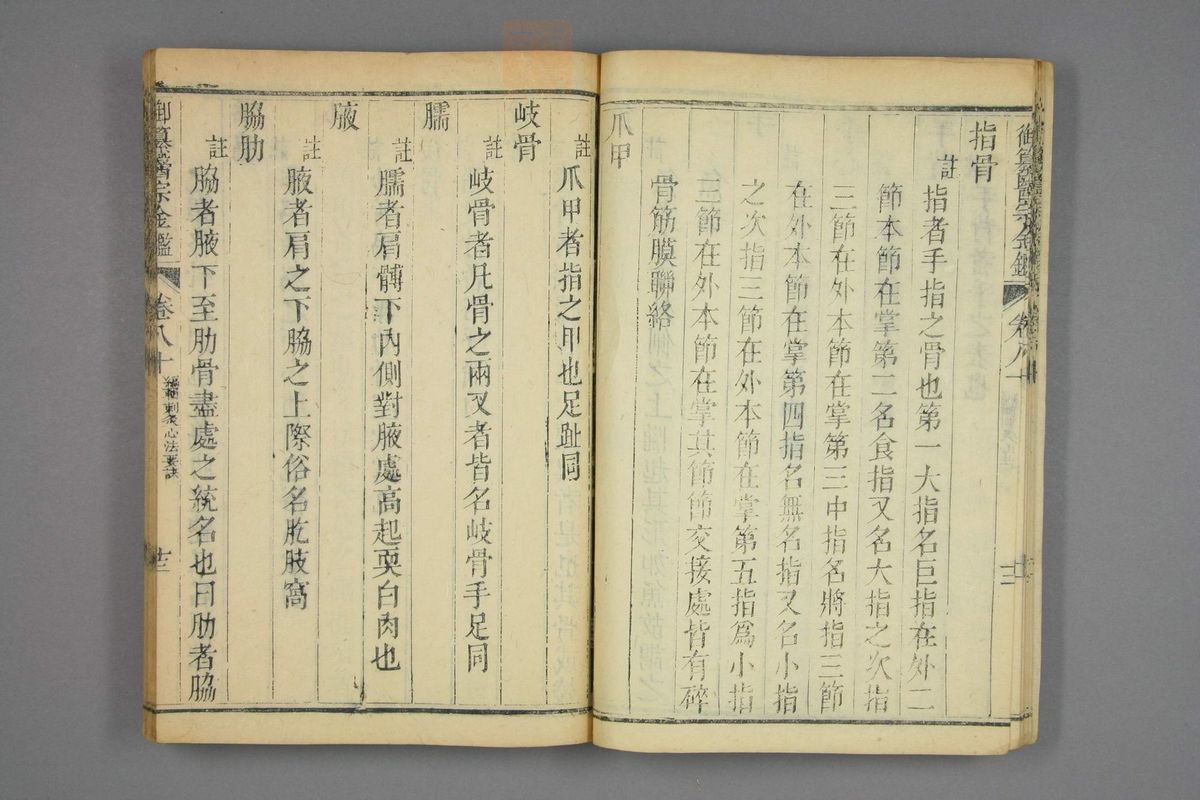 御纂醫宗金鑑
指骨
註
指者手指之骨也第一大指名巨指在外二
節本節在掌第二名食指又名大指之次指
三節在外本節在掌第三中指名將指三節
在外本節在掌第四指名無名指又名小指
之次指三節在外本節在掌第五指爲小指
三節在外本節在掌其節節交接處皆有碎
骨筋膜聯絡
爪甲
註
爪甲者指之甲也足趾同
岐骨
註
岐骨者凡骨之兩叉者皆名岐骨手足同
臑
註
臑者肩髆下內側對腋處高起耎白肉也
腋
註
腋者肩之下脇之上際俗名肐肢窩
脇肋
註
脇者腋下至肋骨盡處之統名也曰肋者脇
御纂醫宗金鑑
卷八十
編輯刺灸心法要訣